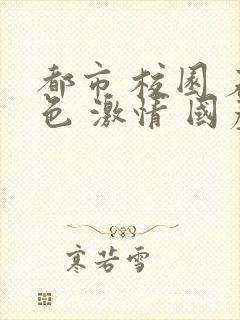 都市 校园
色 激情 國
寒若雪